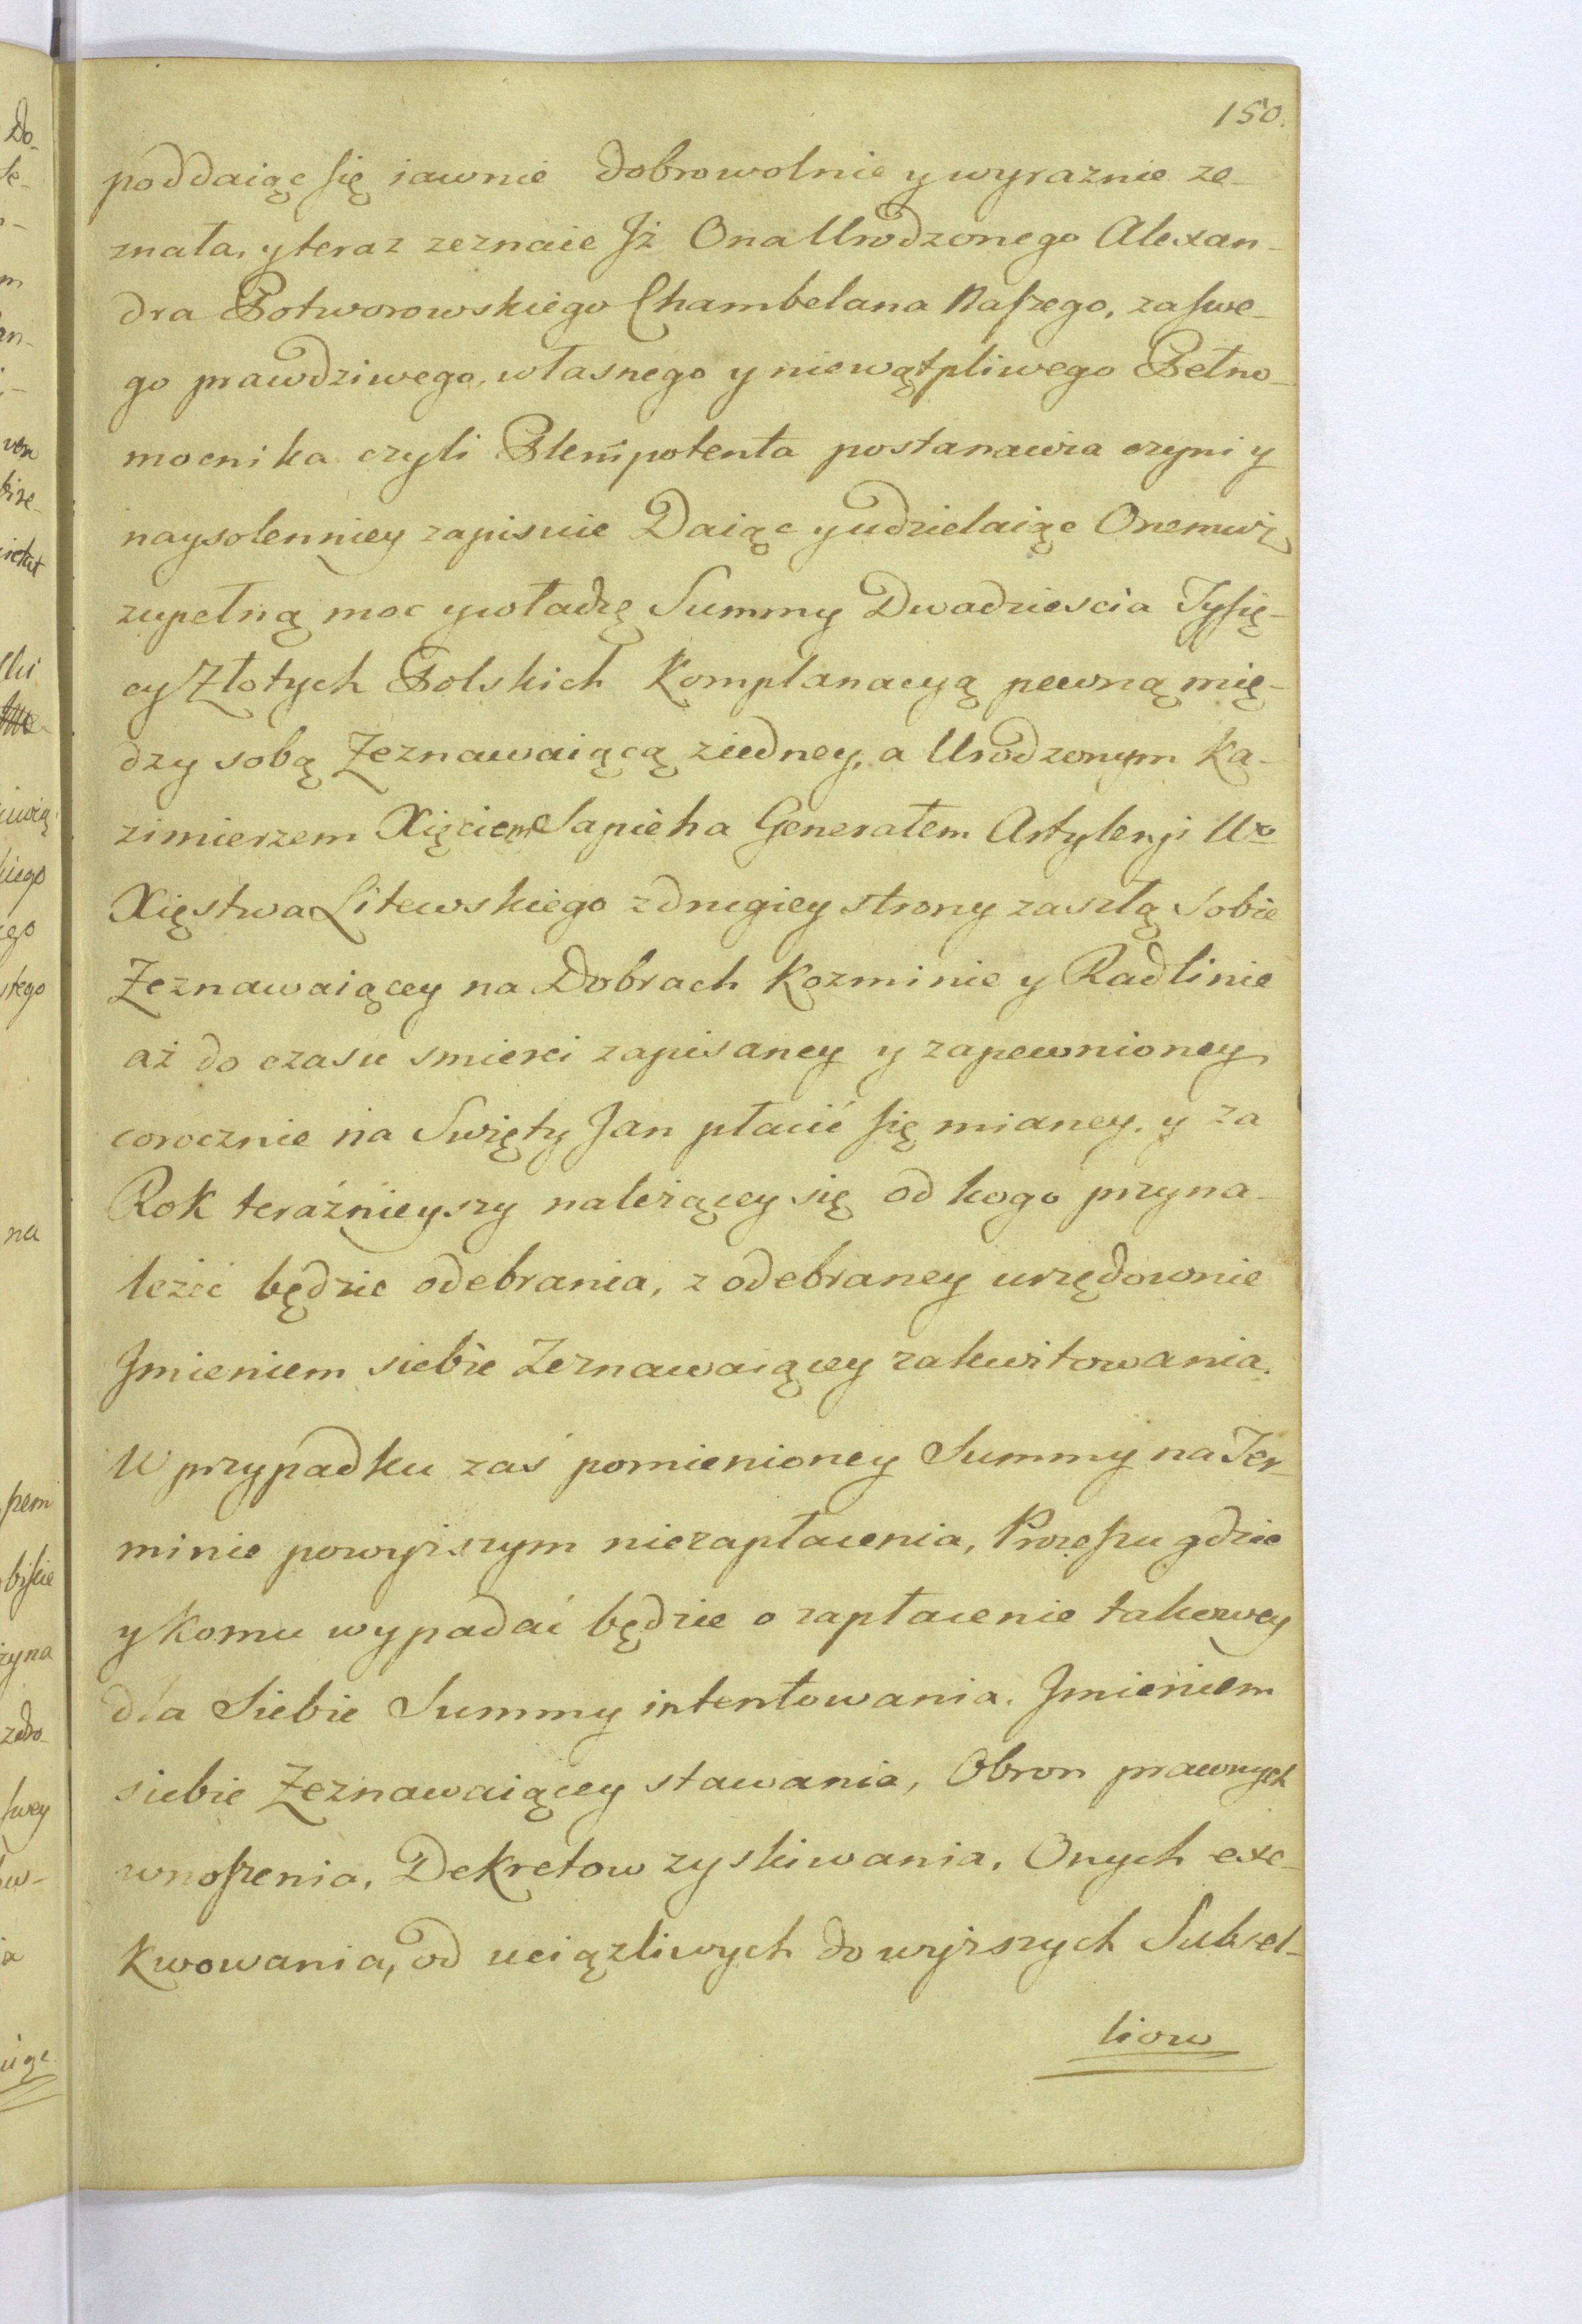 150.
poddaiąc się iawnie dobrowolnie y wyraznie ze-
znała, y teraz zeznaie Jż Ona Urodzonego Alexan-
dra Potworowskiego Chambelana Naszego, za swe-
go prawdziwego, własnego y niewątpliwego Pełno-
mocnika czyli Plenipotenta postanawia czyni y
naysolenniey zapisuie Daiąc y udzielaiąc Onemuż
zupełną moc y władzę Summy Dwadziescia Tysię-
cy Złotych Polskich Komplanacyą pewną mię-
dzy sobą Zeznawaiącą ziedney, a Urodzonym Ka-
zimierzem Xięciem Sapieha Generałem Artylerji Wo
Xięstwa Litewskiego zdrugiey strony zaszłą Sobie
Zeznawaiącey na Dobrach Kozminie y Radlinie
aż do czasu smierci zapisaney y zapewnioney
corocznie na Swięty Jan płacić się mianey, y za
Rok teraźnieyszy należącey się od kogo przyna-
leżeć będzie odebrania, z odebraney urzędownie
Jmieniem siebie Zeznawaiącey zakwitowania.
W przypadku zaś pomienioney Summy na Ter-
minie powyższym niezapłacenia, Processu gdzie
y komu wypadać będzie o zapłacenie takowey
dla Siebie Summy intentowania. Jmieniem
siebie Zeznawaiącey stawania, Obron prawnych
wnoszenia, Dekretow zyskiwania, Onych exe-
kwowania, od uciązliwych do wyższych Subsel-
liow